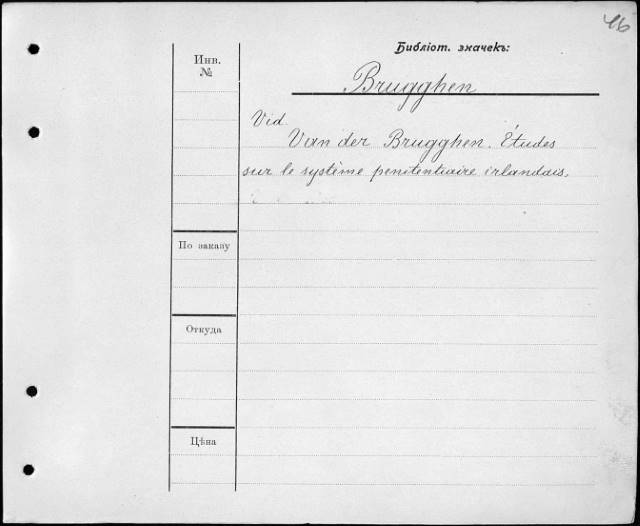 46
Библіот. значекъ:
Инв.
№
Brugghen
Vid.
Van der Brugghen. Études
sur le système penitentiaire irlandais.
По заказу
Откуда
Цѣна